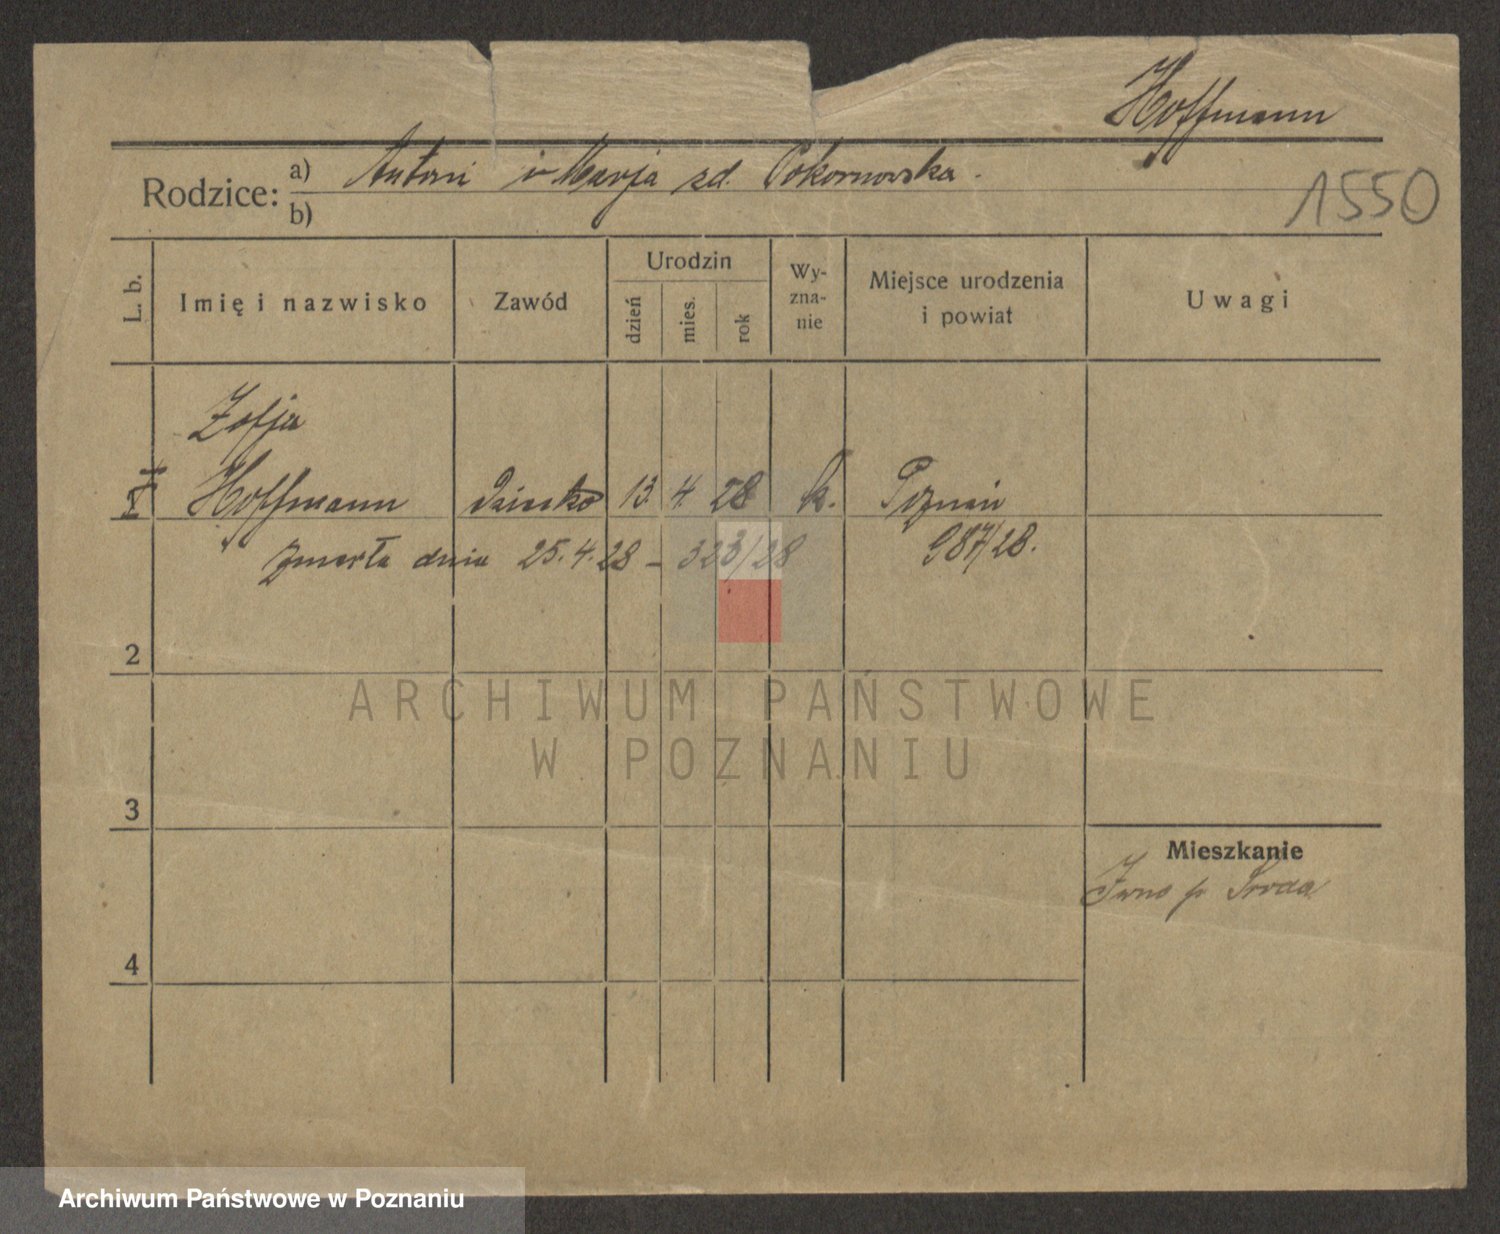 Hoffmann
Rodzice: a) Antoni i Marja zd. Pokornowska.
b)
1550
L. b.
Imię i nazwisko
Zawód
Urodzin
dzień
mies.
rok
Wy-
zna-
nie
Miejsce urodzenia
i powiat
Uwagi
Zofja
1 Hoffmann dziecko 13. 4. 28 k. Poznań
zmarła dnia 25.4.28 – 323/28 987/28.
2
ARCHIWUM PAŃSTWOWE
W POZNANIU
3
Mieszkanie
p. Środa
4
Archiwum Państwowe w Poznaniu